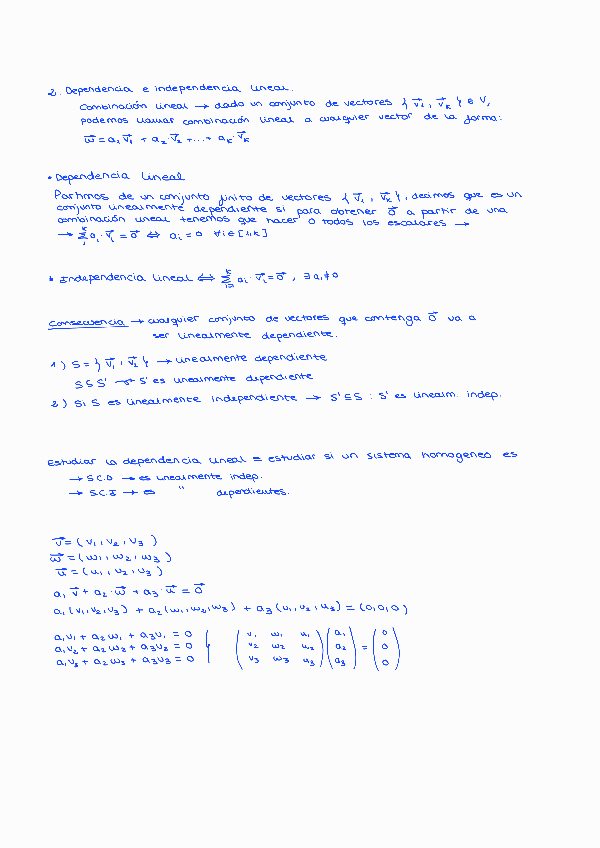 2. Dependencia e independencia lineal.
Combinación lineal → dado un conjunto de vectores { v⃗₁, v⃗ₖ } ∈ V,
podemos llamar combinación lineal a cualquier vector de la forma:
w⃗ = a₁ v⃗₁ + a₂·v⃗₂ + ... + aₖ·v⃗ₖ
• Dependencia lineal
Partimos de un conjunto finito de vectores { v⃗₁, v⃗ₖ }, decimos que es un
conjunto linealmente dependiente si para obtener 0⃗ a partir de una
combinación lineal tenemos que hacer 0 todos los escalares →
→ Σ aᵢ·v⃗ᵢ = 0⃗ ⇔ aᵢ = 0 ∀i ∈ [1,k]
• Independencia lineal ⇔ Σ aᵢ·v⃗ᵢ = 0⃗, ∃ aᵢ ≠ 0
Consecuencia → cualquier conjunto de vectores que contenga 0⃗ va a
ser linealmente dependiente.
1) S = { v⃗₁, v⃗₂ } → linealmente dependiente
S ⊆ S' → S' es linealmente dependiente
2) Si S es linealmente independiente → S' ⊆ S : S' es linealm. indep.
Estudiar la dependencia lineal = estudiar si un sistema homogeneo es
→ S.C.D → es linealmente indep.
→ S.C.I → es " dependientes.
v⃗ = (v₁, v₂, v₃)
w⃗ = (w₁, w₂, w₃)
u⃗ = (u₁, u₂, u₃)
a₁ v⃗ + a₂·w⃗ + a₃·u⃗ = 0⃗
a₁(v₁, v₂, v₃) + a₂(w₁, w₂, w₃) + a₃(u₁, u₂, u₃) = (0,0,0)
a₁v₁ + a₂w₁ + a₃u₁ = 0 } ( v₁ w₁ u₁ ) ( a₁ ) ( 0 )
a₁v₂ + a₂w₂ + a₃u₂ = 0 } ( v₂ w₂ u₂ ) ( a₂ ) = ( 0 )
a₁v₃ + a₂w₃ + a₃u₃ = 0 } ( v₃ w₃ u₃ ) ( a₃ ) ( 0 )